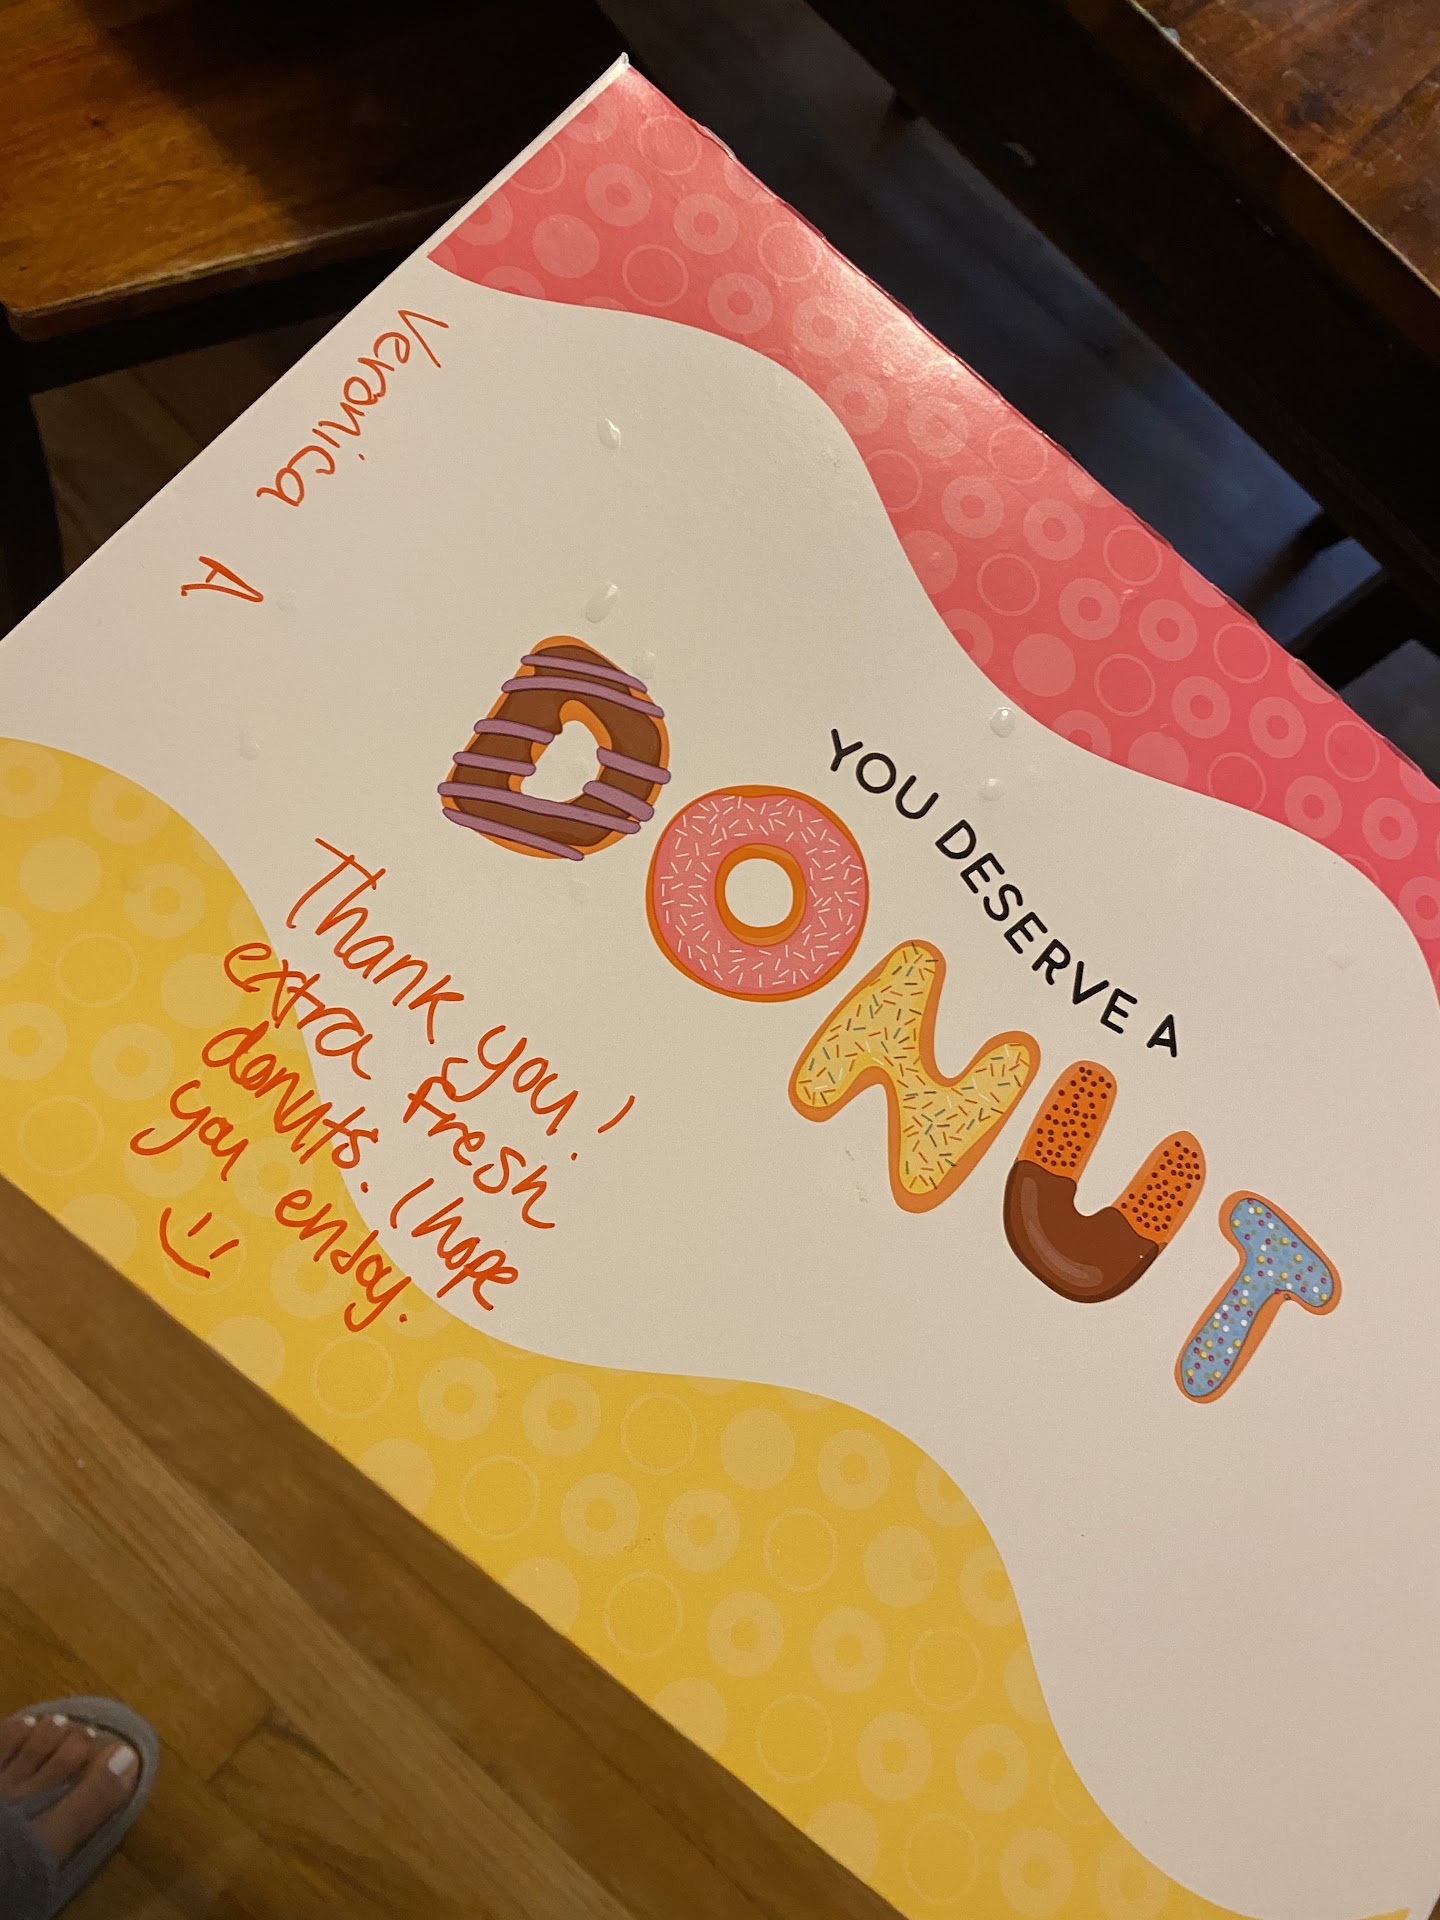 Veronica A
YOU DESERVE A
DONUT
Thank you!
extra fresh
donuts. I hope
you enjoy.